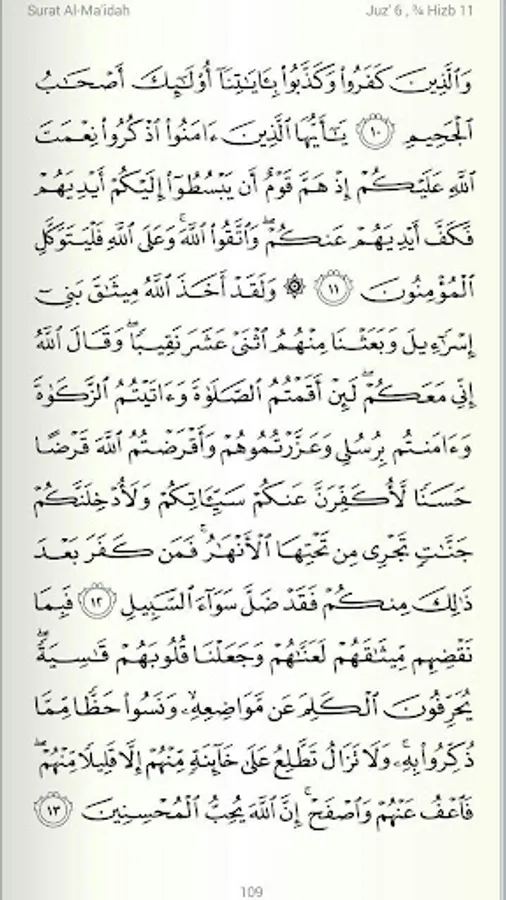 Surat Al-Ma'idah
Juz' 6 , ¾ Hizb 11
وَٱلَّذِينَ كَفَرُوا۟ وَكَذَّبُوا۟ بِـَٔايَـٰتِنَآ أُو۟لَـٰٓئِكَ أَصْحَـٰبُ
ٱلْجَحِيمِ ١٠ يَـٰٓأَيُّهَا ٱلَّذِينَ ءَامَنُوا۟ ٱذْكُرُوا۟ نِعْمَتَ
ٱللَّهِ عَلَيْكُمْ إِذْ هَمَّ قَوْمٌ أَن يَبْسُطُوٓا۟ إِلَيْكُمْ أَيْدِيَهُمْ
فَكَفَّ أَيْدِيَهُمْ عَنكُمْ ۖ وَٱتَّقُوا۟ ٱللَّهَ ۚ وَعَلَى ٱللَّهِ فَلْيَتَوَكَّلِ
ٱلْمُؤْمِنُونَ ١١ ۞ وَلَقَدْ أَخَذَ ٱللَّهُ مِيثَـٰقَ بَنِىٓ
إِسْرَٰٓءِيلَ وَبَعَثْنَا مِنْهُمُ ٱثْنَىْ عَشَرَ نَقِيبًا ۖ وَقَالَ ٱللَّهُ
إِنِّى مَعَكُمْ ۖ لَئِنْ أَقَمْتُمُ ٱلصَّلَوٰةَ وَءَاتَيْتُمُ ٱلزَّكَوٰةَ
وَءَامَنتُم بِرُسُلِى وَعَزَّرْتُمُوهُمْ وَأَقْرَضْتُمُ ٱللَّهَ قَرْضًا
حَسَنًا لَّأُكَفِّرَنَّ عَنكُمْ سَيِّـَٔاتِكُمْ وَلَأُدْخِلَنَّكُمْ
جَنَّـٰتٍ تَجْرِى مِن تَحْتِهَا ٱلْأَنْهَـٰرُ ۚ فَمَن كَفَرَ بَعْدَ
ذَٰلِكَ مِنكُمْ فَقَدْ ضَلَّ سَوَآءَ ٱلسَّبِيلِ ١٢ فَبِمَا
نَقْضِهِم مِّيثَـٰقَهُمْ لَعَنَّـٰهُمْ وَجَعَلْنَا قُلُوبَهُمْ قَـٰسِيَةً ۖ
يُحَرِّفُونَ ٱلْكَلِمَ عَن مَّوَاضِعِهِۦ ۙ وَنَسُوا۟ حَظًّا مِّمَّا
ذُكِّرُوا۟ بِهِۦ ۚ وَلَا تَزَالُ تَطَّلِعُ عَلَىٰ خَآئِنَةٍ مِّنْهُمْ إِلَّا قَلِيلًا مِّنْهُمْ ۖ
فَٱعْفُ عَنْهُمْ وَٱصْفَحْ ۚ إِنَّ ٱللَّهَ يُحِبُّ ٱلْمُحْسِنِينَ ١٣
109